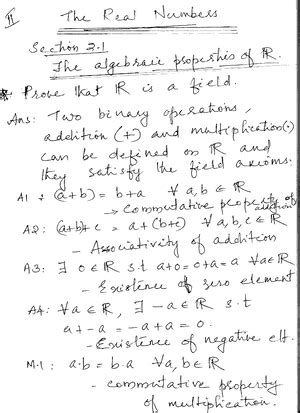 II The Real Numbers
Section 2.1
The algebraic properties of ℝ.
* Prove that ℝ is a field.
Ans: Two binary operations,
addition (+) and multiplication(·)
can be defined on ℝ and
they satisfy the field axioms.
A1 : (a+b) = b+a ∀ a,b ∈ ℝ
→ Commutative property of addition
A2: (a+b)+c = a+(b+c) ∀ a,b,c ∈ ℝ
- Associativity of addition
A3: ∃ 0 ∈ ℝ s.t a+0=0+a=a ∀a∈ℝ
- Existence of zero element
A4: ∀a ∈ ℝ, ∃ -a ∈ ℝ s.t
a+-a = -a+a = 0.
- Existence of negative elt.
M.1 : a.b = b.a ∀a,b∈ℝ
- commutative property
of multiplication.